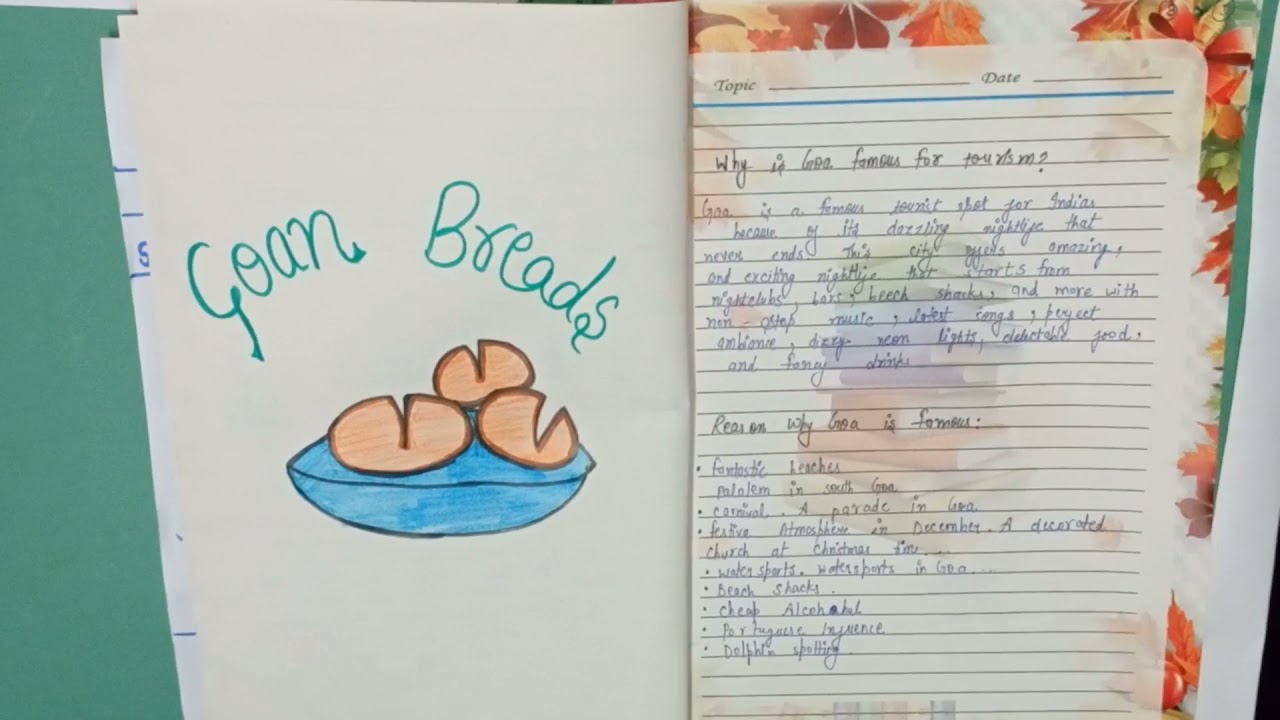 Goan Breads
Topic Date
Why is Goa famous for tourism?
Goa is a famous tourist spot for Indias
because of its dazzling nightlife that
never ends This city offers amazing,
and exciting nightlife that starts from
nightclubs, bars, beech shacks, and more with
non-stop music, latest songs, perfect
ambiance, dizzy neon lights, delectable food,
and fancy drinks
Reason Why Goa is famous:
• fantastic beaches
palolem in south Goa
• carnival. A parade in Goa
• festive Atmosphere in December. A decorated
church at christmas tim....
• watersports. watersports in Goa....
• Beach shacks.
• cheap Alcohahol
• Portuguese Influence
• Dolphin spotting.
S